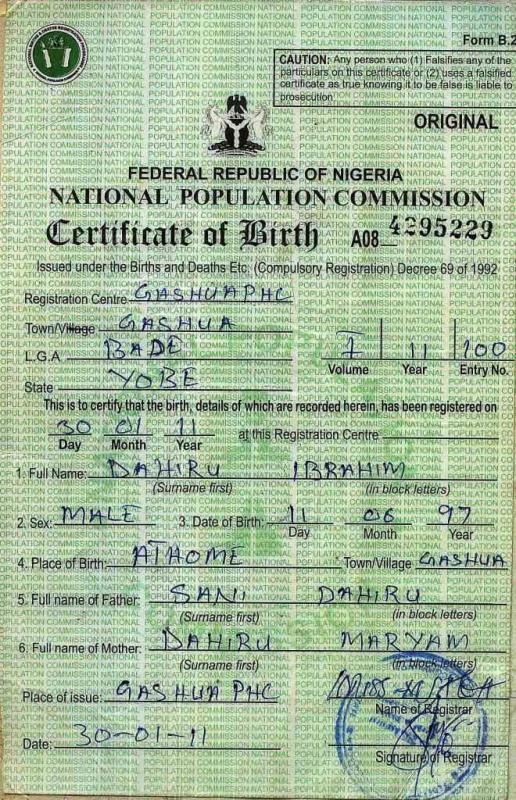 Form B.2
CAUTION: Any person who (1) Falsifies any of the
particulars on this certificate or (2) uses a falsified
certificate as true knowing it to be false is liable to
prosecution
ORIGINAL
FEDERAL REPUBLIC OF NIGERIA
NATIONAL POPULATION COMMISSION
Certificate of Birth A08 4295229
Issued under the Births and Deaths Etc. (Compulsory Registration) Decree 69 of 1992
Registration Centre GASHUA PHC
Town/Village GASHUA
L.G.A. BADE
State YOBE
I 11 100
Volume Year Entry No.
This is to certify that the birth, details of which are recorded herein, has been registered on
30 01 11 at this Registration Centre
Day Month Year
1. Full Name: DAHIRU IBRAHIM
(Surname first) (in block letters)
2. Sex: MALE 3. Date of Birth: 11 06 97
Day Month Year
4. Place of Birth: AT HOME Town/Village GASHUA
5. Full name of Father: SANI DAHIRU
(Surname first) (in block letters)
6. Full name of Mother: DAHIRU MARYAM
(Surname first) (in block letters)
Place of issue: GASHUA PHC
Name of Registrar
Date: 30-01-11
Signature of Registrar